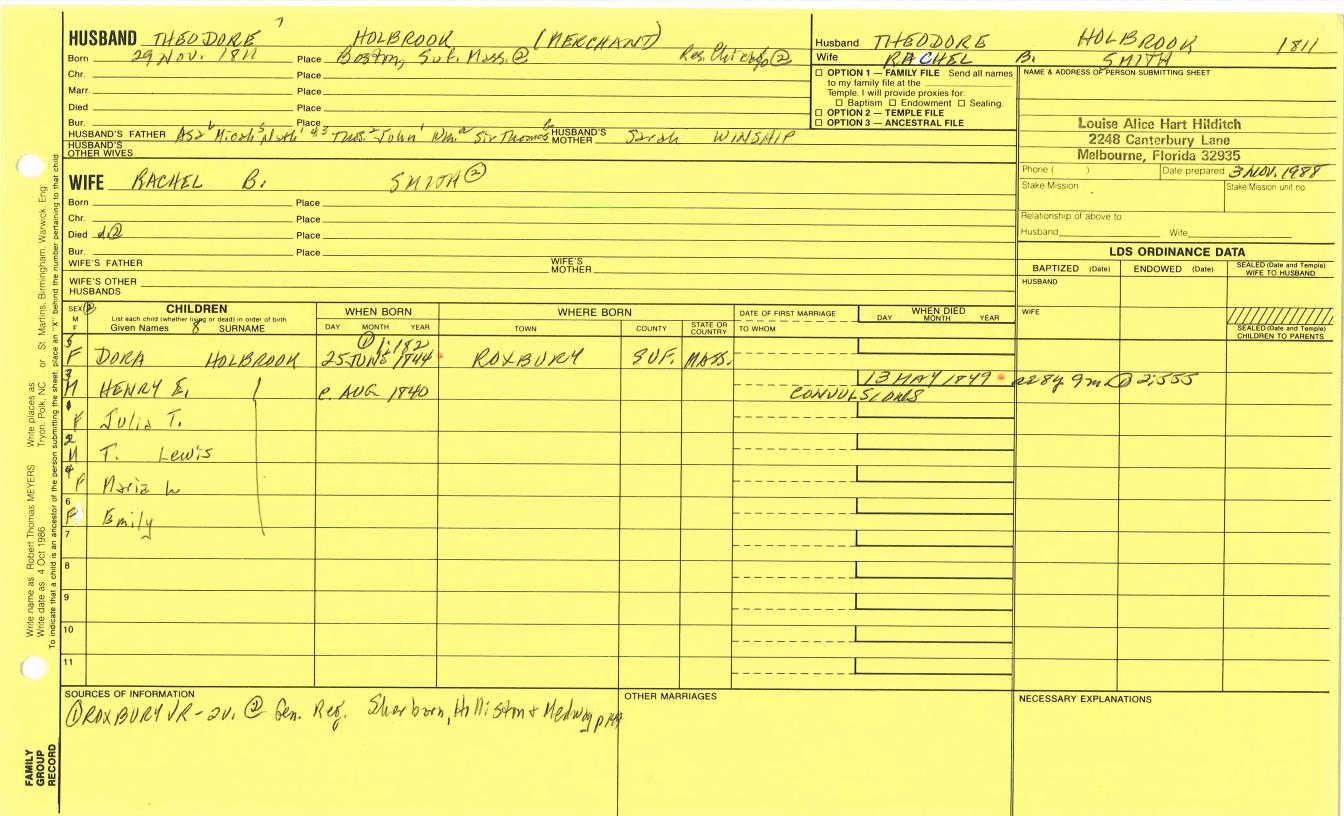 HUSBAND THEODORE HOLBROOK (MERCHANT)
Born 29 NOV. 1811 Place Boston, Suf. Mass. ② Res. ②
Chr. Place
Marr. Place
Died Place
Bur. Place
HUSBAND'S FATHER Asa Micah Thos. John Wm Sir Thomas HUSBAND'S MOTHER Sarah WINSHIP
HUSBAND'S OTHER WIVES
WIFE RACHEL B. SMITH ②
Born Place
Chr. Place
Died d.② Place
Bur. Place
WIFE'S FATHER WIFE'S MOTHER
WIFE'S OTHER HUSBANDS
Husband THEODORE HOLBROOK 1811
Wife RACHEL B. SMITH
☐ OPTION 1 — FAMILY FILE Send all names
to my family file at the
Temple. I will provide proxies for:
☐ Baptism ☐ Endowment ☐ Sealing.
☐ OPTION 2 — TEMPLE FILE
☐ OPTION 3 — ANCESTRAL FILE
NAME & ADDRESS OF PERSON SUBMITTING SHEET
Louise Alice Hart Hilditch
2248 Canterbury Lane
Melbourne, Florida 32935
Phone ( ) Date prepared 3 NOV. 1988
Stake Mission Stake Mission unit no.
Relationship of above to
Husband Wife
LDS ORDINANCE DATA
BAPTIZED (Date) ENDOWED (Date) SEALED (Date and Temple) WIFE TO HUSBAND
HUSBAND
WIFE
SEALED (Date and Temple) CHILDREN TO PARENTS
SEX M F ②
CHILDREN
List each child (whether living or dead) in order of birth
Given Names 8 SURNAME
WHEN BORN
DAY MONTH YEAR
WHERE BORN
TOWN COUNTY STATE OR COUNTRY
DATE OF FIRST MARRIAGE
TO WHOM
WHEN DIED
DAY MONTH YEAR
①1:182
5 F DORA HOLBROOK 25 JUNE 1844 ROXBURY SUF. MASS.
3 M HENRY E. c. AUG 1840 13 MAY 1849 ae 8y 9m ① 2:555
CONVULSIONS
1 F Julia T.
2 M T. Lewis
4 F Maria W
6 F Emily
7
8
9
10
11
SOURCES OF INFORMATION
① ROXBURY VR - 2v. ② Gen. Reg. Sherborn, Holliston & Medway
OTHER MARRIAGES
NECESSARY EXPLANATIONS
Write name as: Robert Thomas MEYERS Write places as: Tryon, Polk, NC or St. Martins, Birmingham, Warwick, Eng
Write date as: 4 Oct 1986
To indicate that a child is an ancestor of the person submitting the sheet, place an "X" behind the number pertaining to that child
FAMILY GROUP RECORD